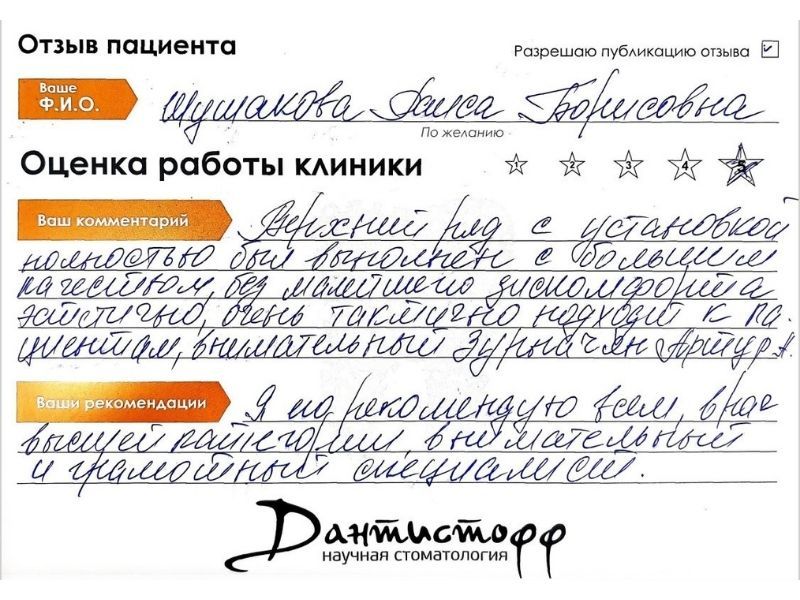 Отзыв пациента
Разрешаю публикацию отзыва
Ваше
Ф.И.О.
Шушакова Раиса Борисовна
По желанию
Оценка работы клиники
1 2 3 4 5
Ваш комментарий
Верхний ряд с установкой
полностью был выполнен с большим
качеством, без малейшего дискомфорта
эстетично, очень тактично подходит к па-
циентам, внимательный Зурначян Артур А.
Ваши рекомендации
Я порекомендую всем, врач
высшей категории, внимательный
и грамотный специалист.
Дантистофф
научная стоматология